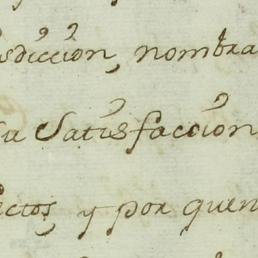 isdiccion, nombra
su Satisfaccion
ectos, y por quen